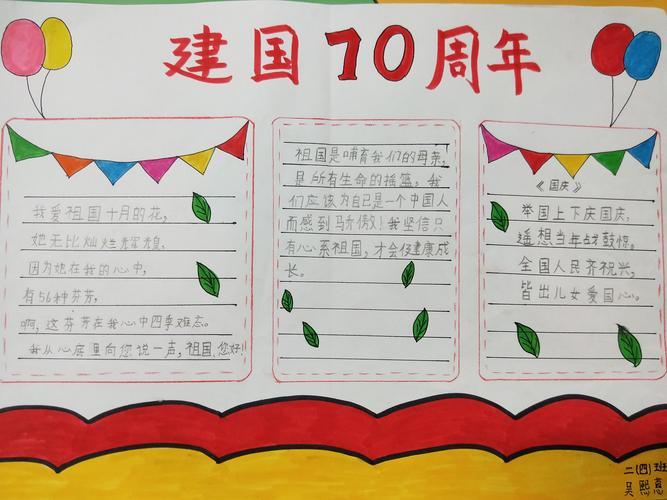 建国70周年
我爱祖国十月的花，
她无比灿烂辉煌，
因为她在我的心中，
有56种芬芳，
啊，这芬芳在我心中四季难忘。
我从心底里向您说一声，祖国，您好！
祖国是哺育我们的母亲，
是所有生命的摇篮，我
们应该为自己是一个中国人
而感到骄傲！我坚信只
有心系祖国，才会健康成
长。
《国庆》
举国上下庆国庆，
遥想当年战鼓惊。
全国人民齐祝兴，
皆出儿女爱国心。
二(四)班
吴熙意